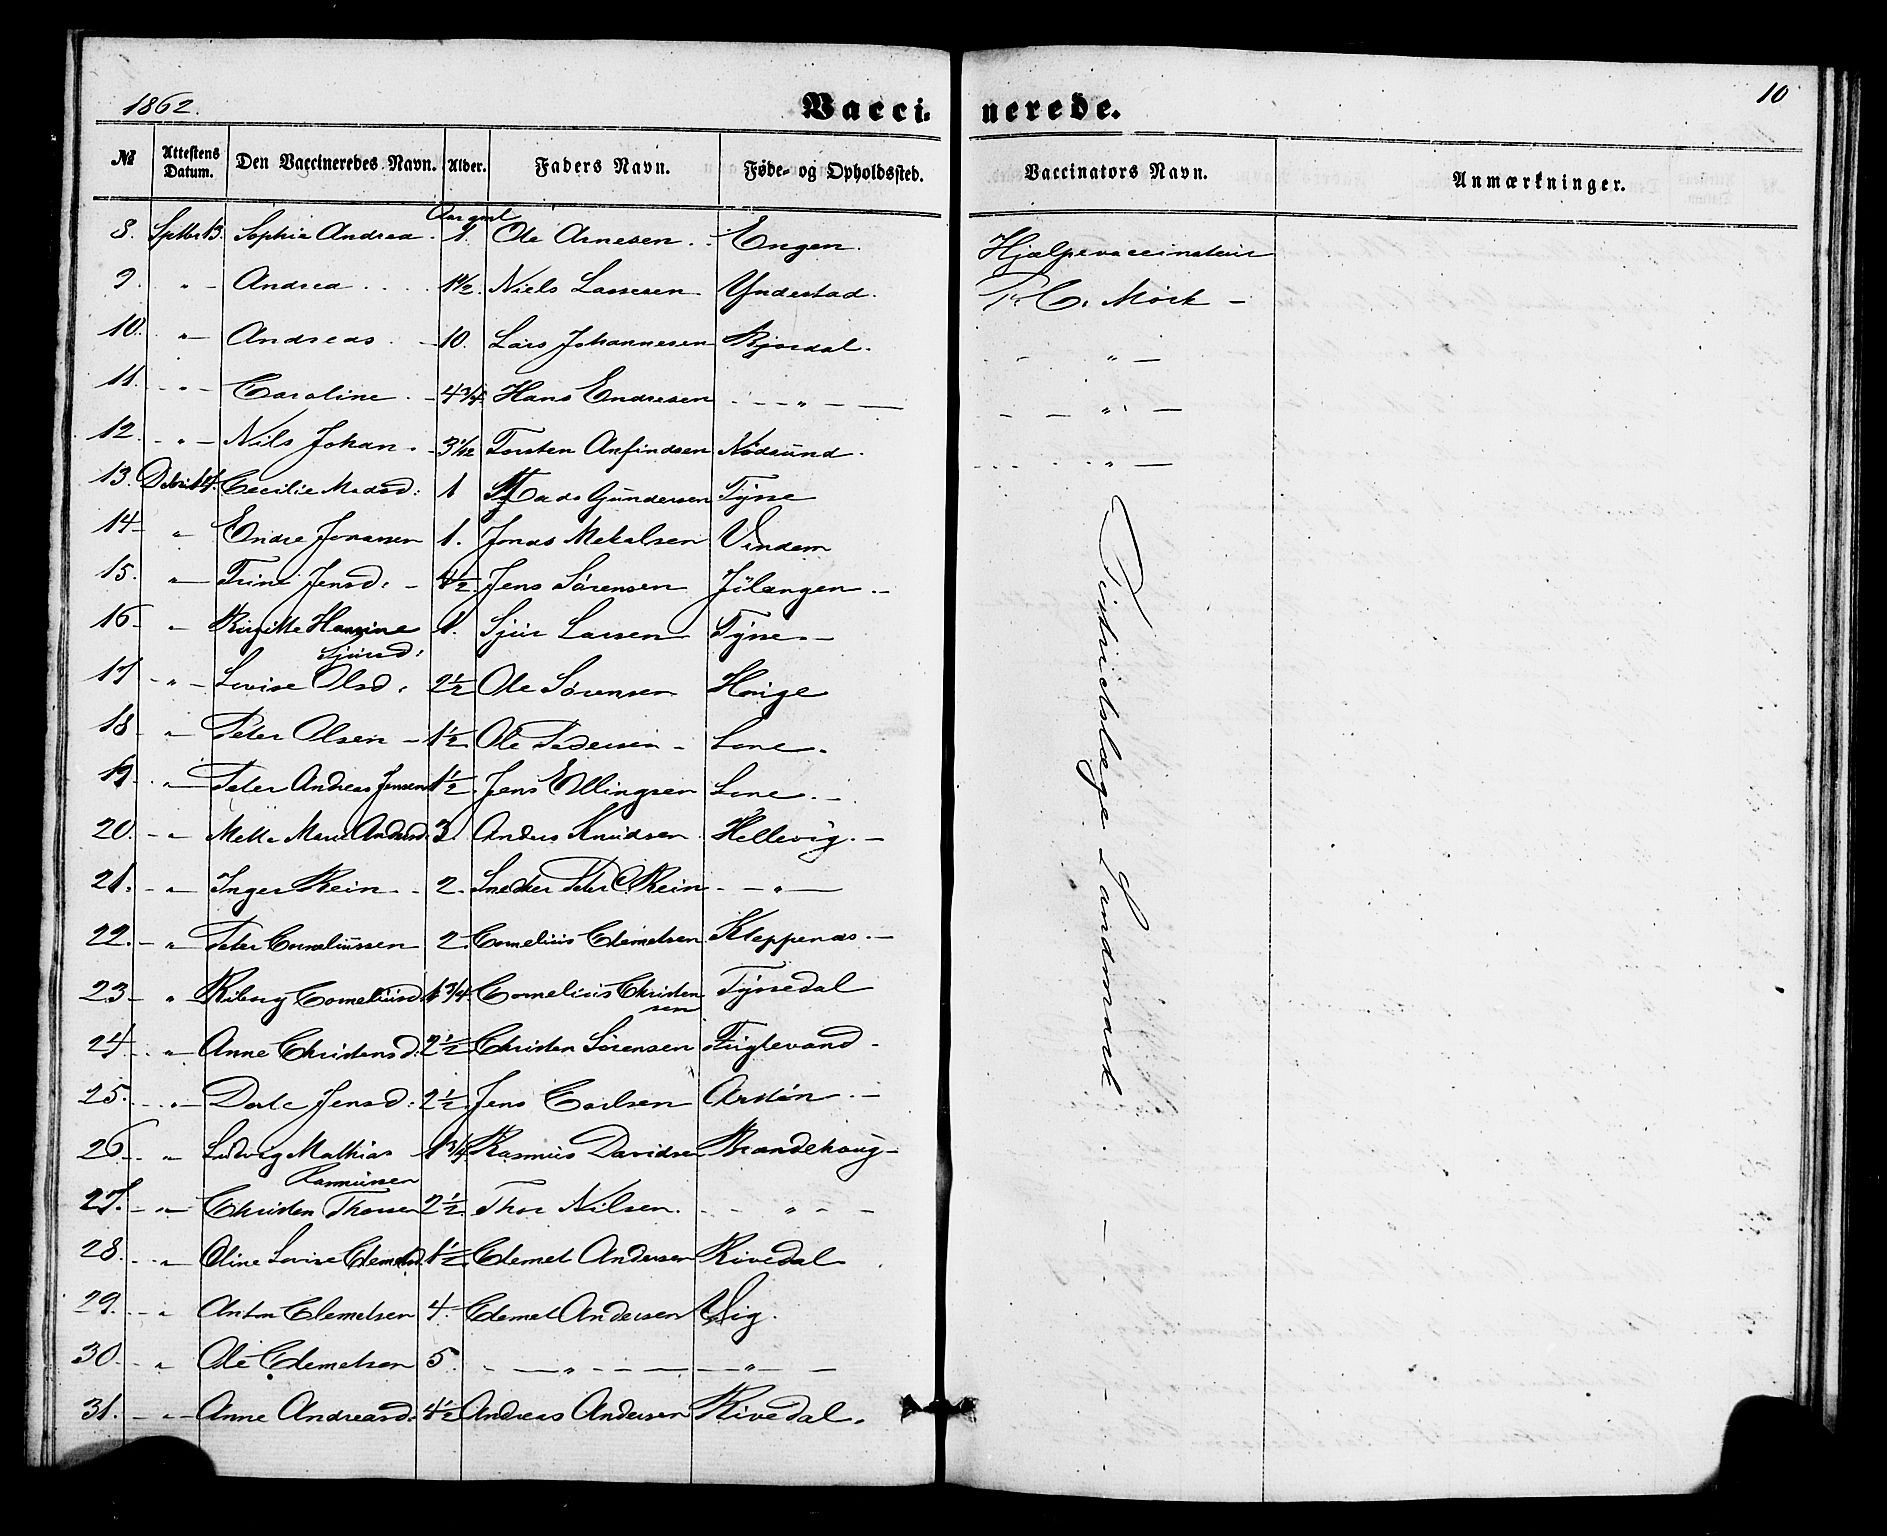 1862.
Vaccinerede.
10
№ Attestens Datum. Den Vaccineredes Navn. Alder. Faders Navn. Føde- og Opholdssted. Vaccinators Navn. Anmærkninger.
Aar gml
8. Septbr 13. Sophia Andrea. 1. Ole Arnesen. Engen. Hjælpevaccinateur
9. " Andrea 1½. Niels Lassesen. Yndestad. C. Mørk
10. " Andreas 10. Lars Johannesen Bjordal. "
11. " Caroline 4¾ Hans Endresen " "
12. " Nils Johan 3 1/12 Torsten Anfindsen Nødsund. "
13. Debr 14. Cecilie Madsd: 1 Mads Gundersen Tysse
14 " Endre Jonassen 1. Jonas Mekalsen Vindem
15. " Trine Jensd: Jens Sørensen
16 " Birgitte Hansine Sjursd: 1. Sjur Larsen Tysse
17 " Lovise Olsd: 2½ Ole Sørensen
18 " Peter Olsen 1½ Ole Pedersen Lone
19 " Peter Andreas Jensen 1½ Jens Ellingsen Lone
20. " Mette Marie Andersd. 3. Anders Knudsen Hellevig.
21. " Inger Rein 2. Snedker Peter Rein "
22. " Peter Corneliussen 2 Cornelius Clemetsen Kleppenæs
23 " Riborg Corneliusd 1¾ Cornelius Christensen Tyssedal
24 " Anne Christensd. 2½ Christen Sørensen Fuglevand
25. " Dorte Jensd: 2½ Jens Carlsen
26 " Ludvig Mathias Rasmussen 1¾ Rasmus Davidsen Brandehoug
27. " Christen Thorsen 2½ Thor Nilsen. "
28. " Oline Lovise Clemetsd. 1½ Clemet Andersen Rivedal
29. " Anton Clemetsen 4. Clemet Andersen Vig.
30 " Ole Clemetsen 5. " "
31. " Anne Andreasd. 4½ Andreas Andersen Rivedal.
Districtslæge Landmark